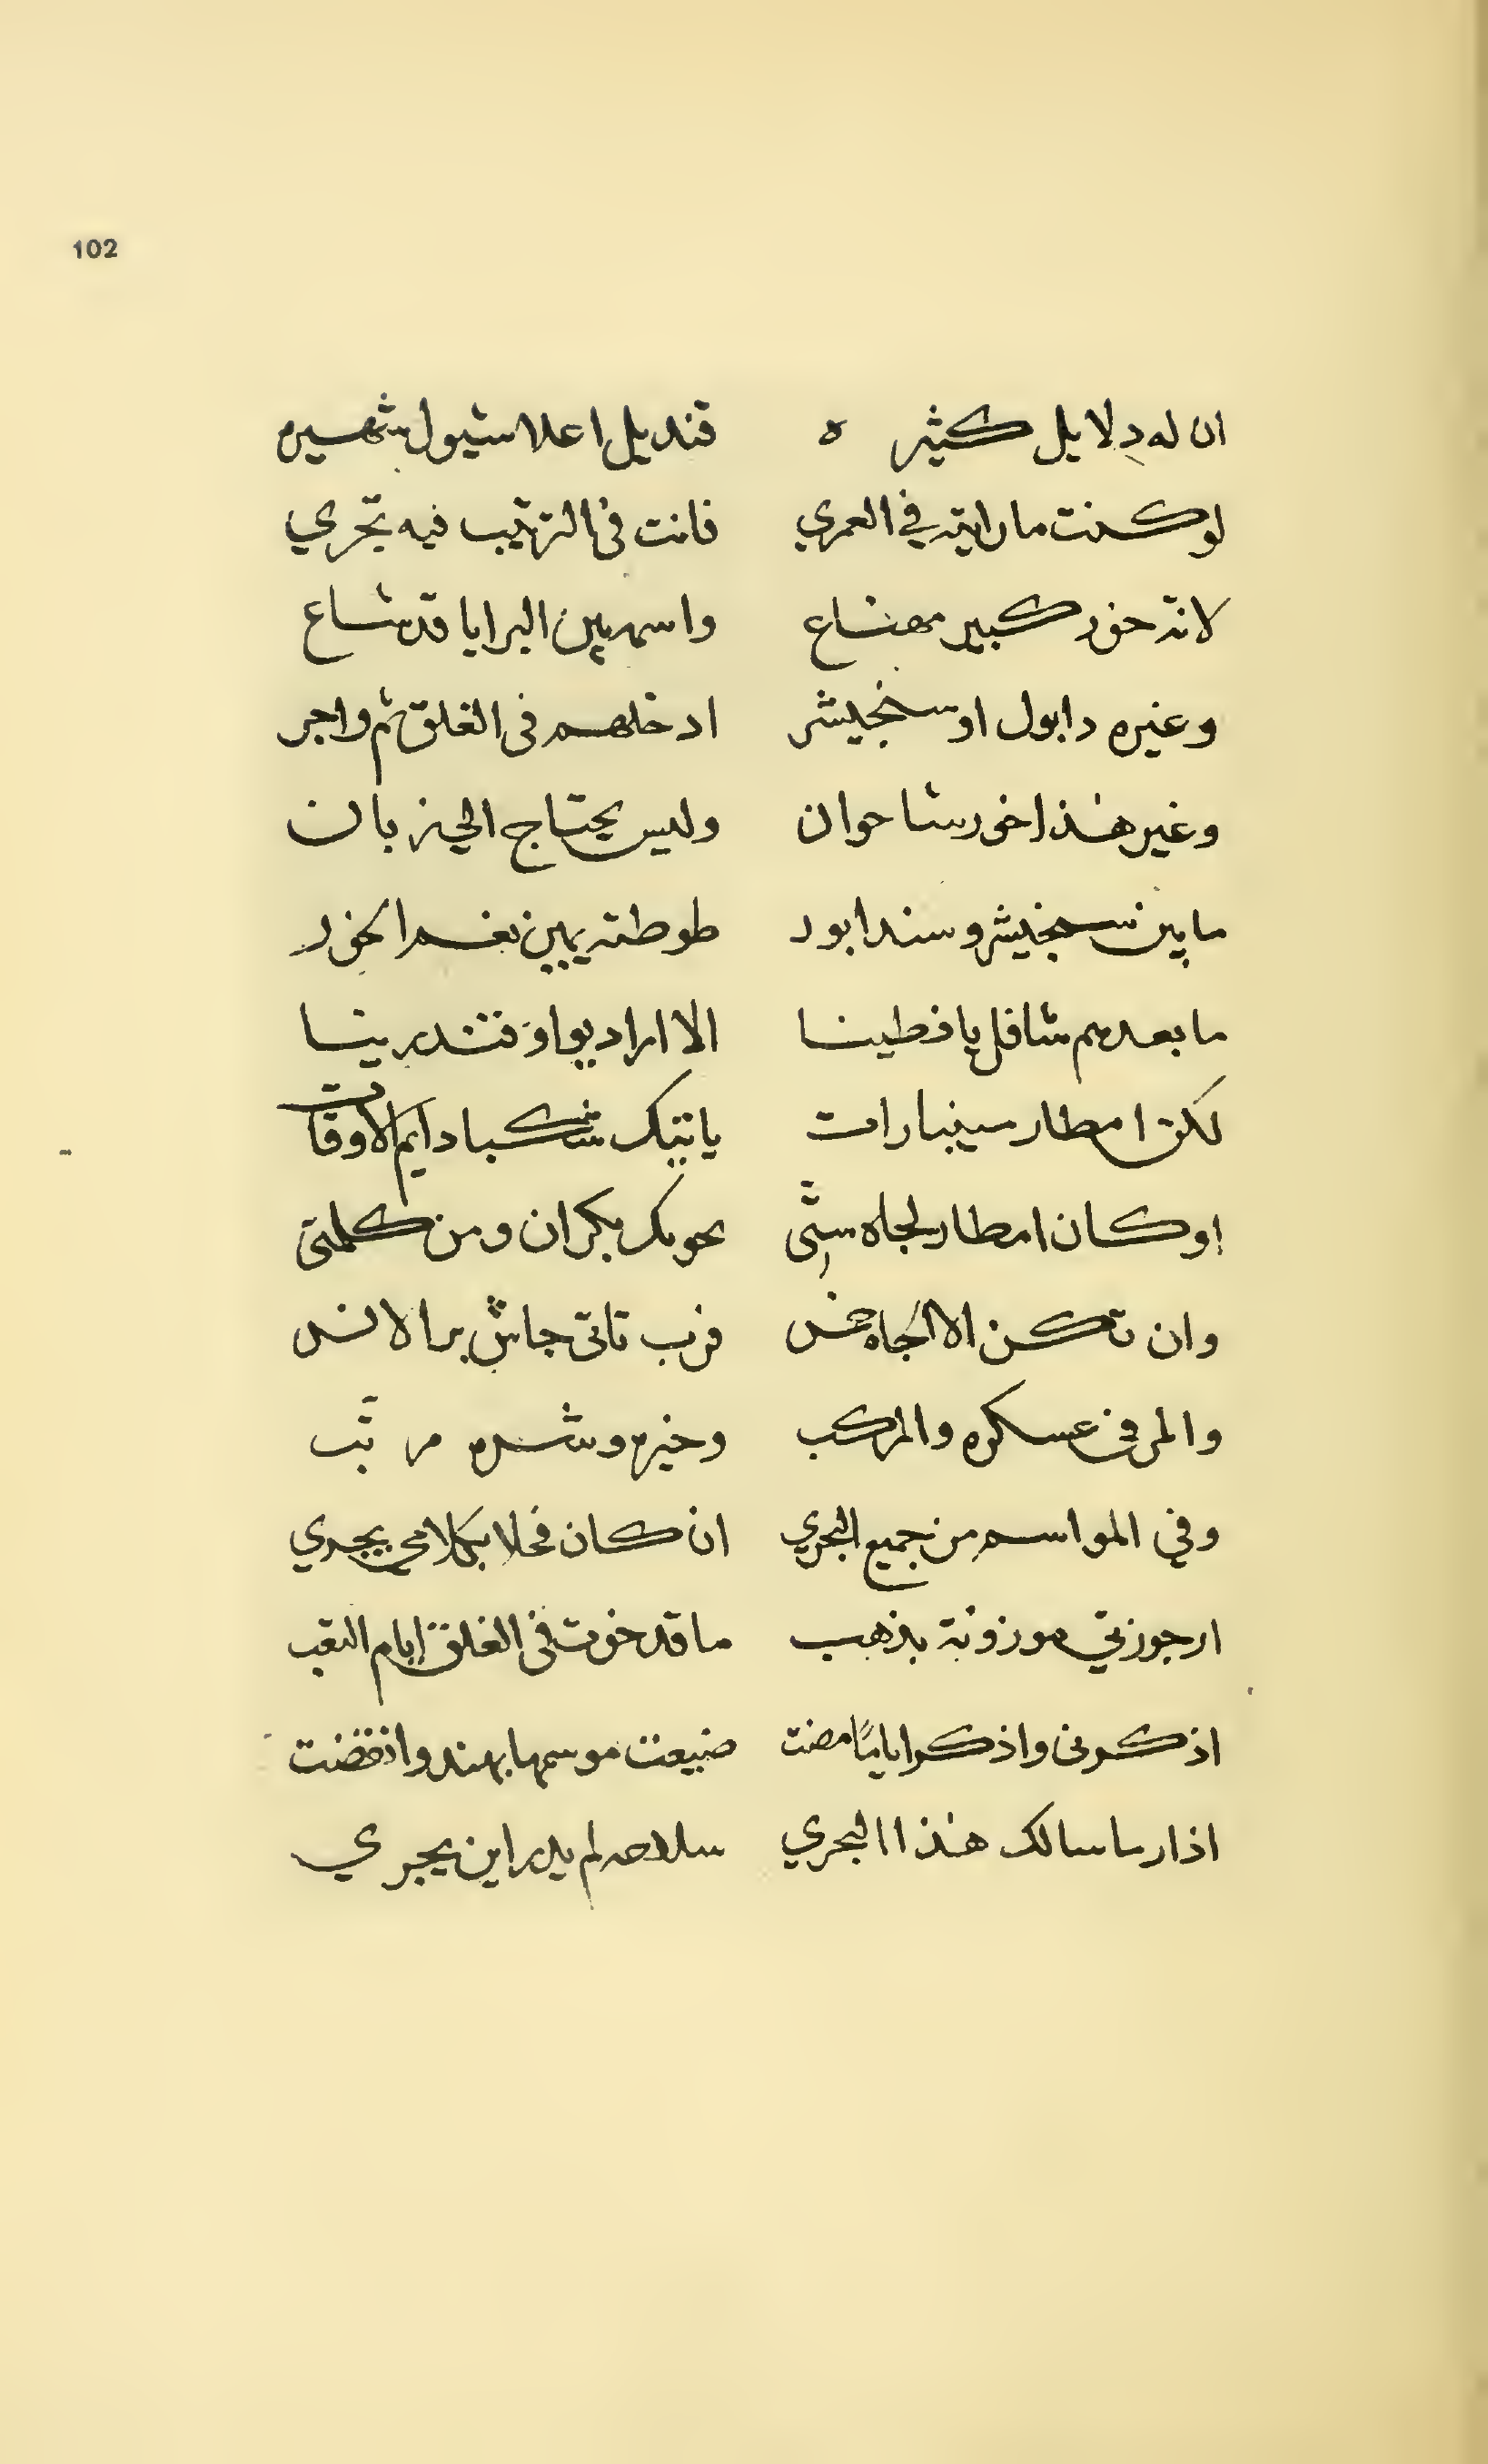 102
ان له دلايل كثيره قنديل اعلا ستيول شهيره
لو كنت ما رايته في العمري فانت في الترتيب فيه تجري
لانه خور كبير مهناع واسمه بين البرايا قد شاع
وغيره دابول او سنجيشر ادخلهم في الغلق ثم واجر
وغير هذا خور شاحوان وليس يحتاج الي زبان
ما بين سنجيشر وسندابور طوطته يبين نعم الخور
ما بعدهم شافل يا فطينا الا اراديو او فتدرينا
لكن امطار سينبارات ياتيك شكبا دايم الاوقات
او كان امطار لجاه ستي بكران ومن كلمتي
وان تكن الا لجاه خن فرب تاتي جاش برا لاند
والمرفى عسكره والمركب وخيره وشره مرتب
وفي المواسم من جميع البحري ان كان فحلا بكلامي يجدي
ارجوزتي موزونة بذهب ما قد خوت في الغلق ايام التعب
اذكروني واذكروا اياما مضت ضيعت موسمها بهند وانقضت
اذا رسا سالك هذا البحري سلاحه لم يدر اين يجري